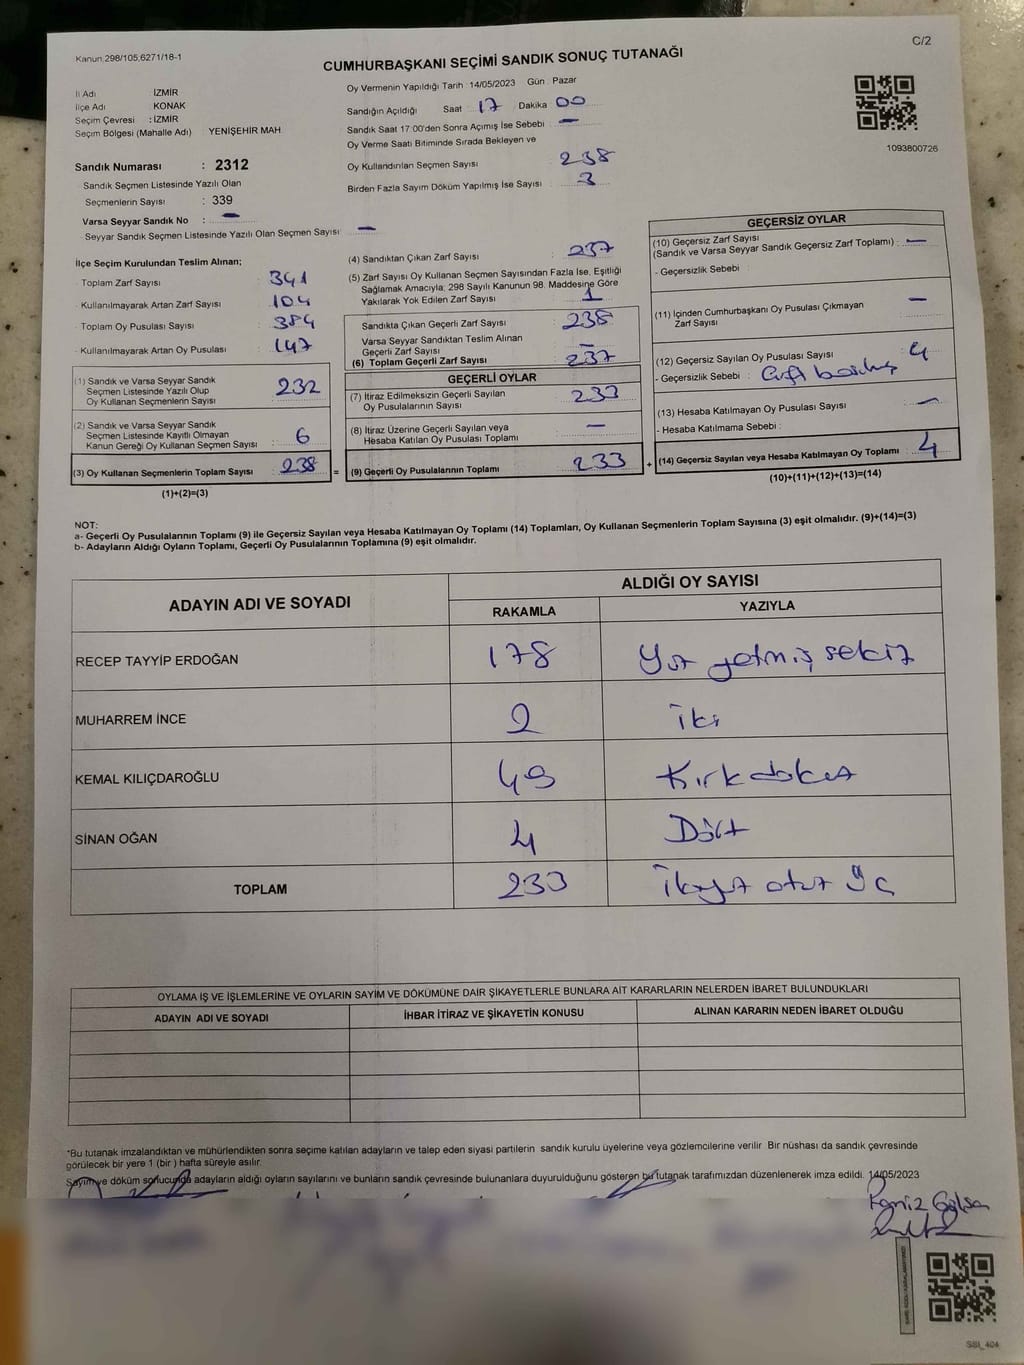 Kanun.298/105,6271/18-1
C/2
CUMHURBAŞKANI SEÇİMİ SANDIK SONUÇ TUTANAĞI
İl Adı İZMİR
İlçe Adı KONAK
Seçim Çevresi : İZMİR
Seçim Bölgesi (Mahalle Adı) YENİŞEHİR MAH
Sandık Numarası : 2312
Sandık Seçmen Listesinde Yazılı Olan
Seçmenlerin Sayısı : 339
Varsa Seyyar Sandık No : -
Seyyar Sandık Seçmen Listesinde Yazılı Olan Seçmen Sayısı -
Oy Vermenin Yapıldığı Tarih :14/05/2023 Gün : Pazar
Sandığın Açıldığı Saat 17 Dakika 00
Sandık Saat 17:00'den Sonra Açımış İse Sebebi : -
Oy Verme Saati Bitiminde Sırada Bekleyen ve
Oy Kullandırılan Seçmen Sayısı 238
Birden Fazla Sayım Döküm Yapılmış İse Sayısı 3
1093800726
İlçe Seçim Kurulundan Teslim Alınan;
Toplam Zarf Sayısı : 341
Kullanılmayarak Artan Zarf Sayısı : 104
Toplam Oy Pusulası Sayısı : 384
Kullanılmayarak Artan Oy Pusulası : 147
(1) Sandık ve Varsa Seyyar Sandık
Seçmen Listesinde Yazılı Olup
Oy Kullanan Seçmenlerin Sayısı 232
(2) Sandık ve Varsa Seyyar Sandık
Seçmen Listesinde Kayıtlı Olmayan
Kanun Gereği Oy Kullanan Seçmen Sayısı 6
(3) Oy Kullanan Seçmenlerin Toplam Sayısı 238
(1)+(2)=(3)
(4) Sandıktan Çıkan Zarf Sayısı : 237
(5) Zarf Sayısı Oy Kullanan Seçmen Sayısından Fazla İse, Eşitliği
Sağlamak Amacıyla; 298 Sayılı Kanunun 98. Maddesine Göre
Yakılarak Yok Edilen Zarf Sayısı 1
Sandıkta Çıkan Geçerli Zarf Sayısı 238
Varsa Seyyar Sandıktan Teslim Alınan
Geçerli Zarf Sayısı -
(6) Toplam Geçerli Zarf Sayısı 237
GEÇERLİ OYLAR
(7) İtiraz Edilmeksizin Geçerli Sayılan
Oy Pusulalarının Sayısı 233
(8) İtiraz Üzerine Geçerli Sayılan veya
Hesaba Katılan Oy Pusulası Toplamı -
= (9) Geçerli Oy Pusulalarının Toplamı 233
GEÇERSİZ OYLAR
(10) Geçersiz Zarf Sayısı
(Sandık ve Varsa Seyyar Sandık Geçersiz Zarf Toplamı) : -
- Geçersizlik Sebebi :
(11) İçinden Cumhurbaşkanı Oy Pusulası Çıkmayan
Zarf Sayısı -
(12) Geçersiz Sayılan Oy Pusulası Sayısı 4
- Geçersizlik Sebebi :
(13) Hesaba Katılmayan Oy Pusulası Sayısı -
- Hesaba Katılmama Sebebi :
+ (14) Geçersiz Sayılan veya Hesaba Katılmayan Oy Toplamı 4
(10)+(11)+(12)+(13)=(14)
NOT:
a- Geçerli Oy Pusulalarının Toplamı (9) ile Geçersiz Sayılan veya Hesaba Katılmayan Oy Toplamı (14) Toplamları, Oy Kullanan Seçmenlerin Toplam Sayısına (3) eşit olmalıdır. (9)+(14)=(3)
b- Adayların Aldığı Oyların Toplamı, Geçerli Oy Pusulalarının Toplamına (9) eşit olmalıdır.
ADAYIN ADI VE SOYADI
ALDIĞI OY SAYISI
RAKAMLA YAZIYLA
RECEP TAYYİP ERDOĞAN 178 Yüz yetmiş sekiz
MUHARREM İNCE 2 iki
KEMAL KILIÇDAROĞLU 49 Kırk dokuz
SİNAN OĞAN 4 Dört
TOPLAM 233 ikiyüz otuz üç
OYLAMA İŞ VE İŞLEMLERİNE VE OYLARIN SAYIM VE DÖKÜMÜNE DAİR ŞİKAYETLERLE BUNLARA AİT KARARLARIN NELERDEN İBARET BULUNDUKLARI
ADAYIN ADI VE SOYADI İHBAR İTİRAZ VE ŞİKAYETİN KONUSU ALINAN KARARIN NEDEN İBARET OLDUĞU
*Bu tutanak imzalandıktan ve mühürlendikten sonra seçime katılan adayların ve talep eden siyasi partilerin sandık kurulu üyelerine veya gözlemcilerine verilir. Bir nüshası da sandık çevresinde
görülecek bir yere 1 (bir) hafta süreyle asılır.
Sayım ve döküm sonucunda adayların aldığı oyların sayılarını ve bunların sandık çevresinde bulunanlara duyurulduğunu gösteren bu tutanak tarafımızdan düzenlenerek imza edildi. 14/05/2023
SSI_404